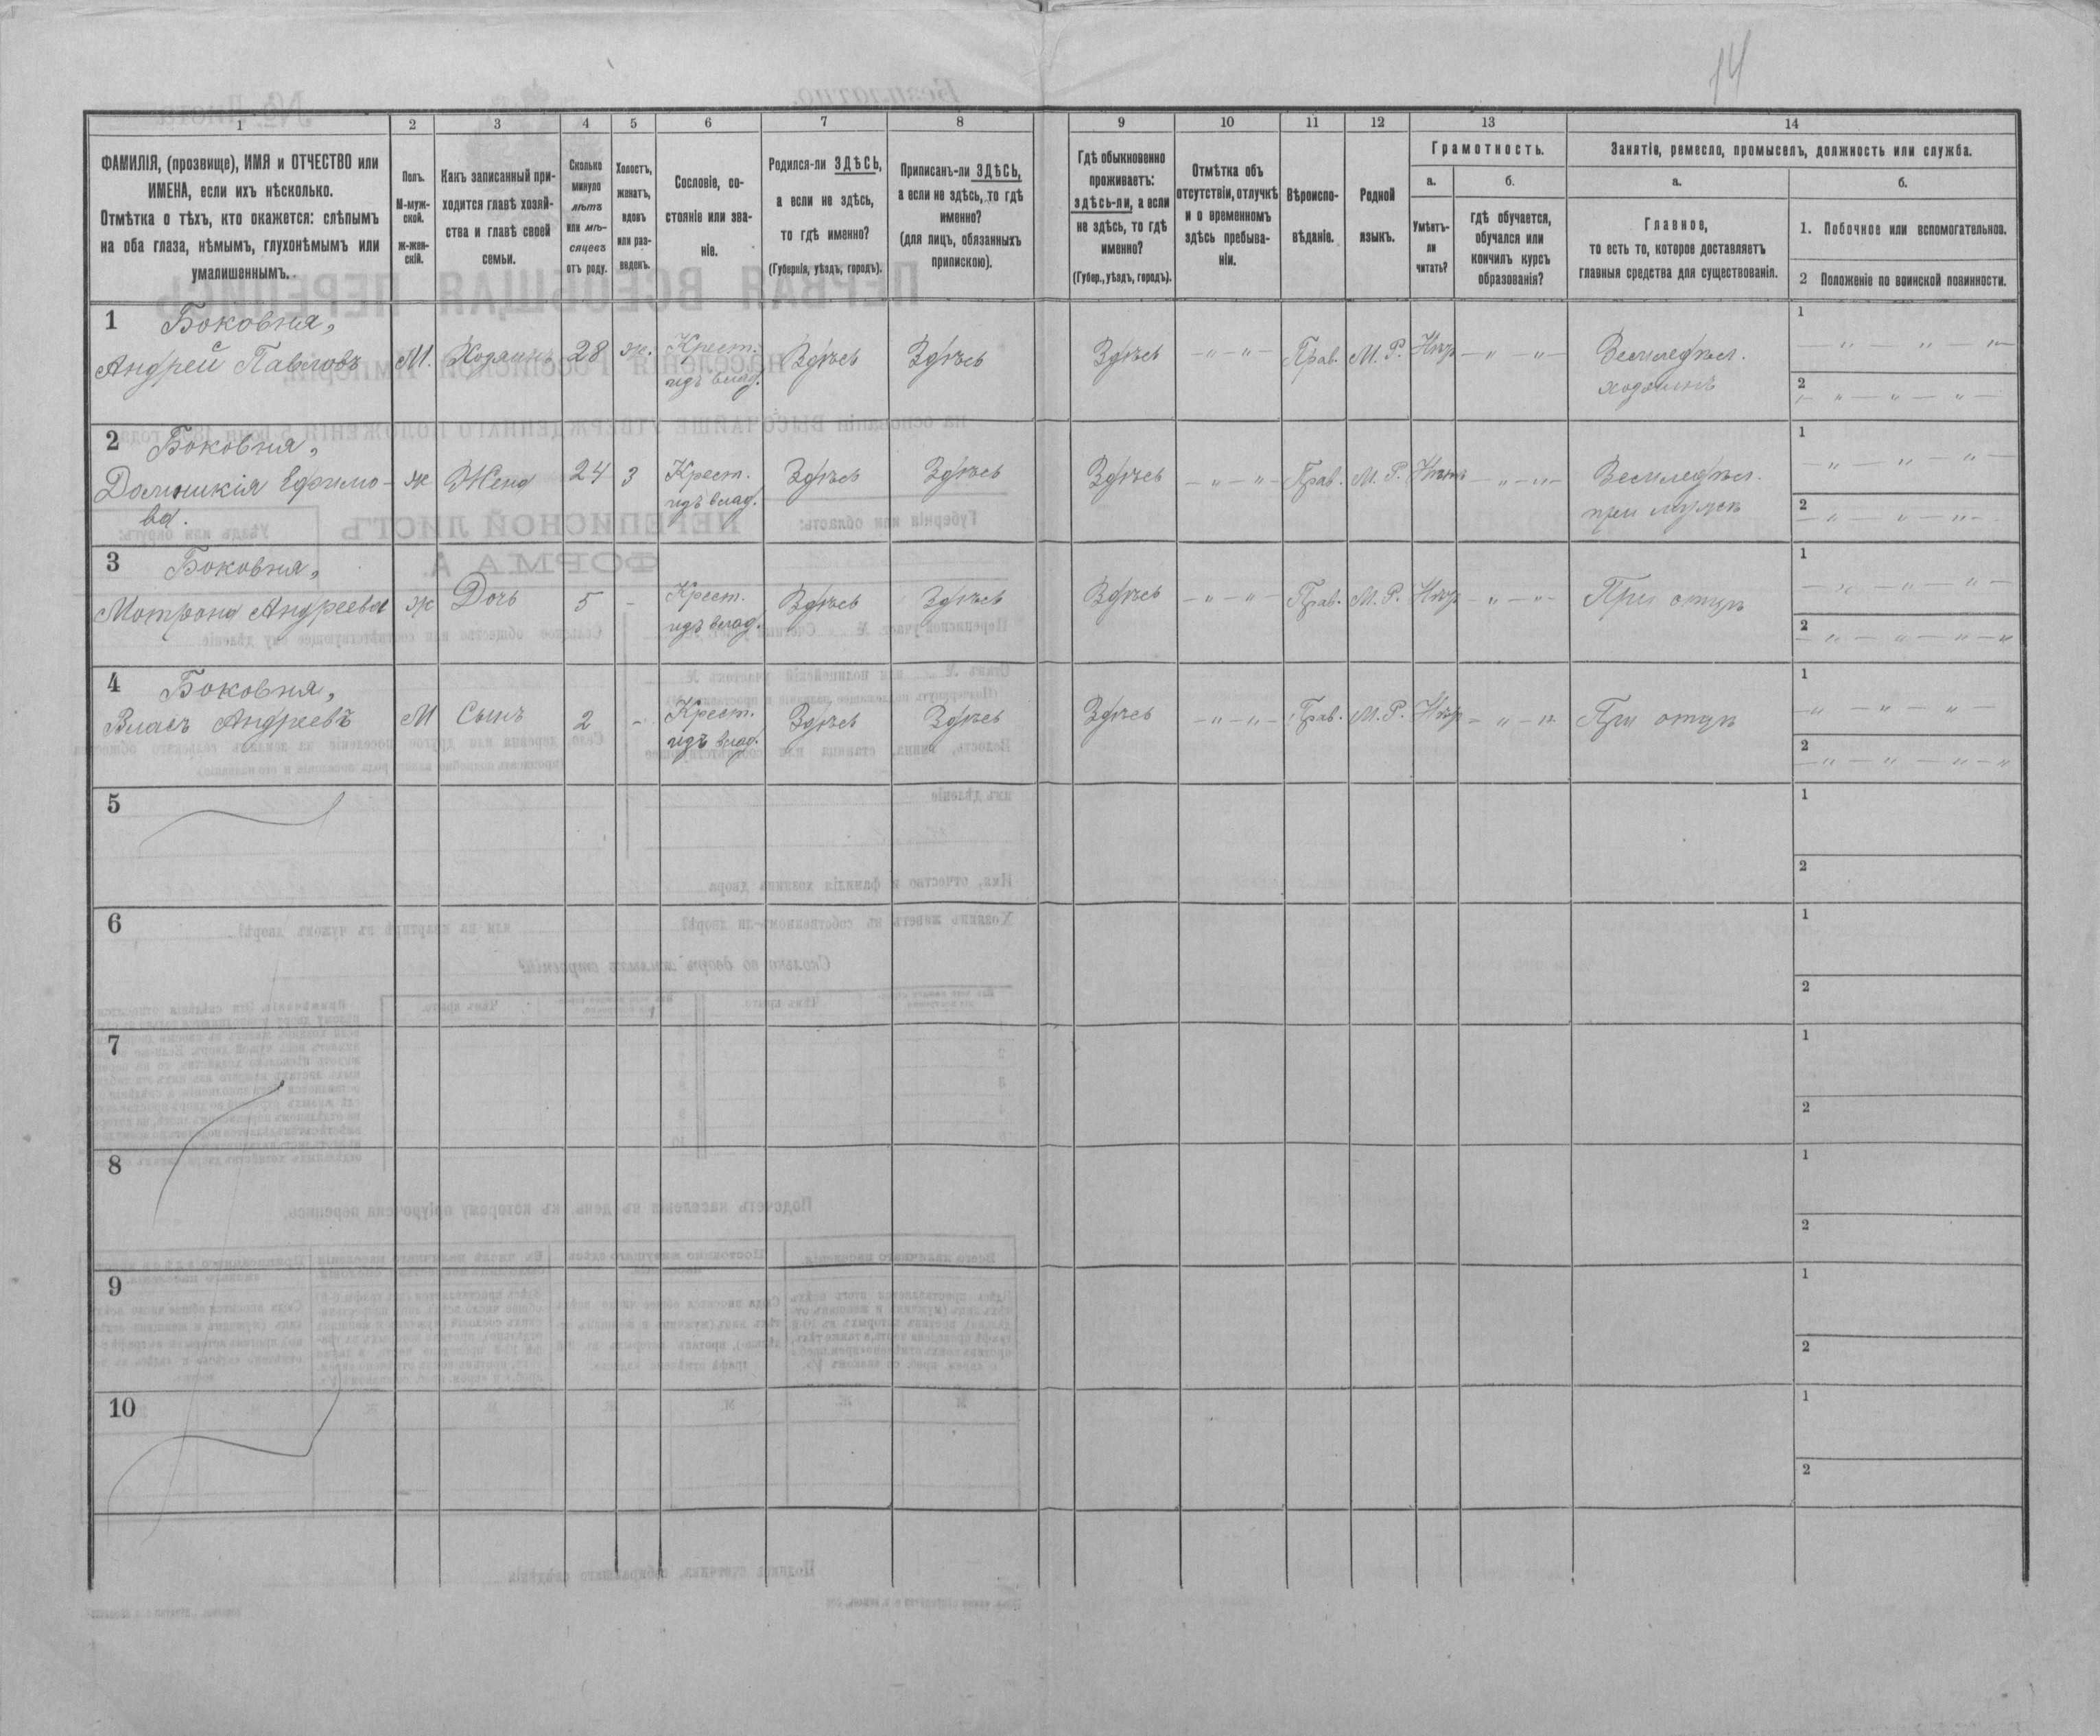 14
1 2 3 4 5 6 7 8 9 10 11 12 13 14
ФАМИЛІЯ, (прозвище), ИМЯ и ОТЧЕСТВО или
ИМЕНА, если ихъ нѣсколько.
Отмѣтка о тѣхъ, кто окажется: слѣпымъ
на оба глаза, нѣмымъ, глухонѣмымъ или
умалишеннымъ.
Полъ.
М-муж-
ской.
ж-жен-
скій.
Какъ записанный при-
ходится главѣ хозяй-
ства и главѣ своей
семьи.
Сколько
минуло
лѣтъ
или мѣ-
сяцевъ
отъ роду.
Холостъ,
женатъ,
вдовъ
или раз-
веденъ.
Сословіе, со-
стояніе или зва-
ніе.
Родился-ли ЗДѢСЬ,
а если не здѣсь,
то гдѣ именно?
(Губернія, уѣздъ, городъ).
Приписанъ-ли ЗДѢСЬ,
а если не здѣсь, то гдѣ
именно?
(для лицъ, обязанныхъ
припискою).
Гдѣ обыкновенно
проживаетъ:
здѣсь-ли, а если
не здѣсь, то гдѣ
именно?
(Губер., уѣздъ, городъ).
Отмѣтка объ
отсутствіи, отлучкѣ
и о временномъ
здѣсь пребыва-
ніи.
Вѣроиспо-
вѣданіе.
Родной
языкъ.
Грамотность.
а.
Умѣетъ-
ли
читать?
б.
гдѣ обучается,
обучался или
кончилъ курсъ
образованія?
Занятіе, ремесло, промыселъ, должность или служба.
а.
Главное,
то есть то, которое доставляетъ
главныя средства для существованія.
б.
1. Побочное или вспомогательное.
2 Положеніе по воинской повинности.
1 Боковня,
Андрей Павловъ М. Хозяинъ 28 ж. Крест. Здѣсь Здѣсь Здѣсь - " - " - Прав. М. Р. Нѣт - " " - Земледѣл. 1 - " - " - "
изъ влад. хозяинъ 2 - " - " - " -
2 Боковня,
Домникія Ефимо- ж Жена 24 З Крест. Здѣсь Здѣсь Здѣсь - " - " - Прав. М. Р. Нѣтъ - " - " - Земледѣл. 1 - " - " - " -
ва. изъ влад. при мужѣ 2 - " - " - " -
3 Боковня,
Мотрона Андреева ж Дочь 5 - Крест. Здѣсь Здѣсь Здѣсь - " - " - Прав. М. Р. Нѣт - " - " - При отцѣ 1 - " - " - " -
изъ влад. 2 - " - " - " - "
4 Боковня,
Власъ Андреевъ М Сынъ 2 - Крест. Здѣсь Здѣсь Здѣсь - " - " - Прав. М. Р. Нѣт - " - " При отцѣ 1 - " - " - " -
изъ влад. 2 - " - " - " - "
5 1
2
6 1
2
7 1
2
8 1
2
9 1
2
10 1
2